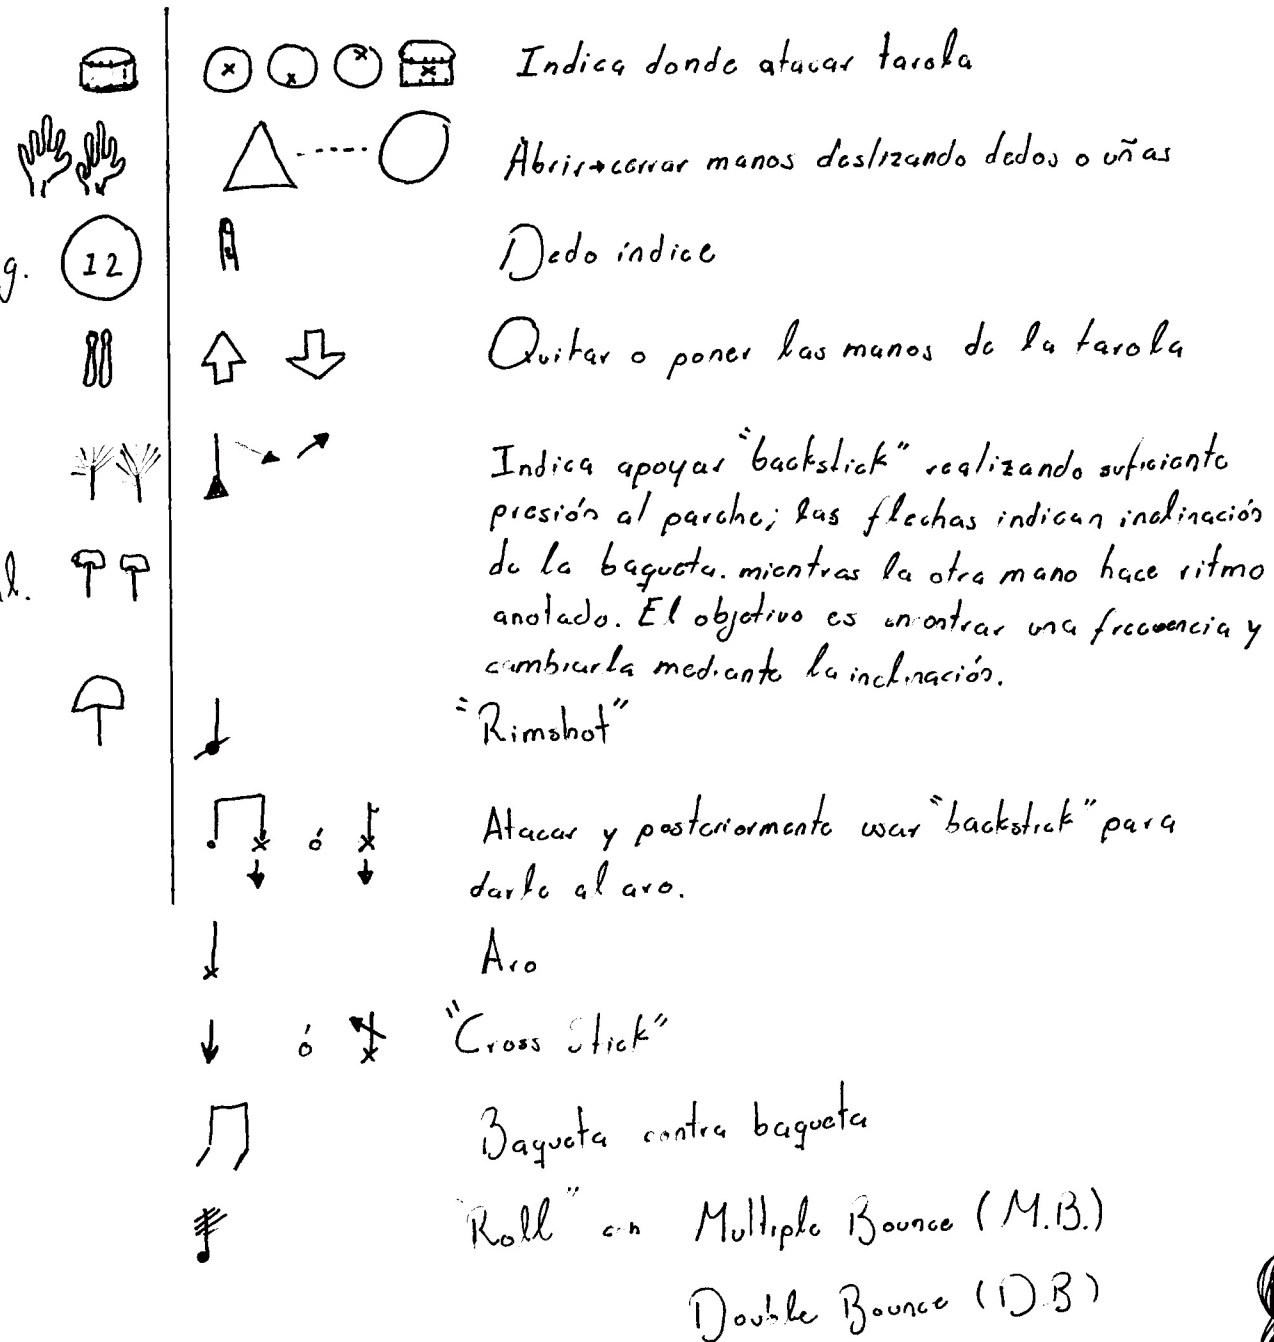 Indica donde atacar tarola
Abrir→cerrar manos deslizando dedos o uñas
g. 12 Dedo índice
Quitar o poner las manos de la tarola
Indica apoyar "backstick" realizando suficiente
presión al parche; las flechas indican inclinación
de la baqueta. mientras la otra mano hace ritmo
l.
anotado. El objetivo es encontrar una frecuencia y
cambiarla mediante la inclinación.
"Rimshot"
ó Atacar y posteriormente usar "backstick" para
darle al aro.
Aro
ó "Cross Stick"
Baqueta contra baqueta
"Roll" en Multiple Bounce (M.B.)
Double Bounce (D.B)